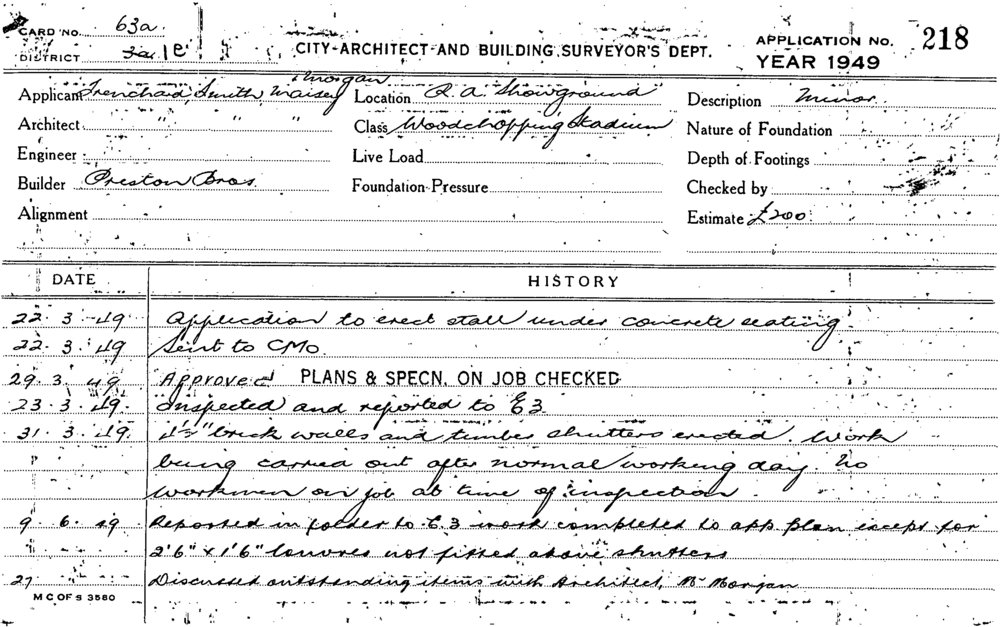 CARD NO. 63a
DISTRICT 3a 1E
CITY ARCHITECT AND BUILDING SURVEYOR'S DEPT.
APPLICATION No. 218
YEAR 1949
Applicant Trenchard, Smith, Maisey Morgan
Architect " " "
Engineer
Builder Preston Bros.
Alignment
Location R. A. Showground
Class Woodchopping Stadium
Live Load
Foundation Pressure
Description Minor.
Nature of Foundation
Depth of Footings
Checked by
Estimate £200
DATE HISTORY
22. 3. 49 Application to erect stall under concrete seating.
22. 3. 49 Sent to CMO.
29. 3. 49 Approved PLANS & SPECN. ON JOB CHECKED
23. 3. 49. Inspected and reported to E3
31. 3. 49. 4½" brick walls and timber shutters erected. Work
being carried out after normal working day. No
workmen on job at time of inspection.
9 6. 49 Reported in folder to E.3 work completed to app. plan except for
2'6" x 1'6" louvres not fitted above shutters
27 Discussed outstanding items with Architect, Mr Morgan
M C OF S 3580